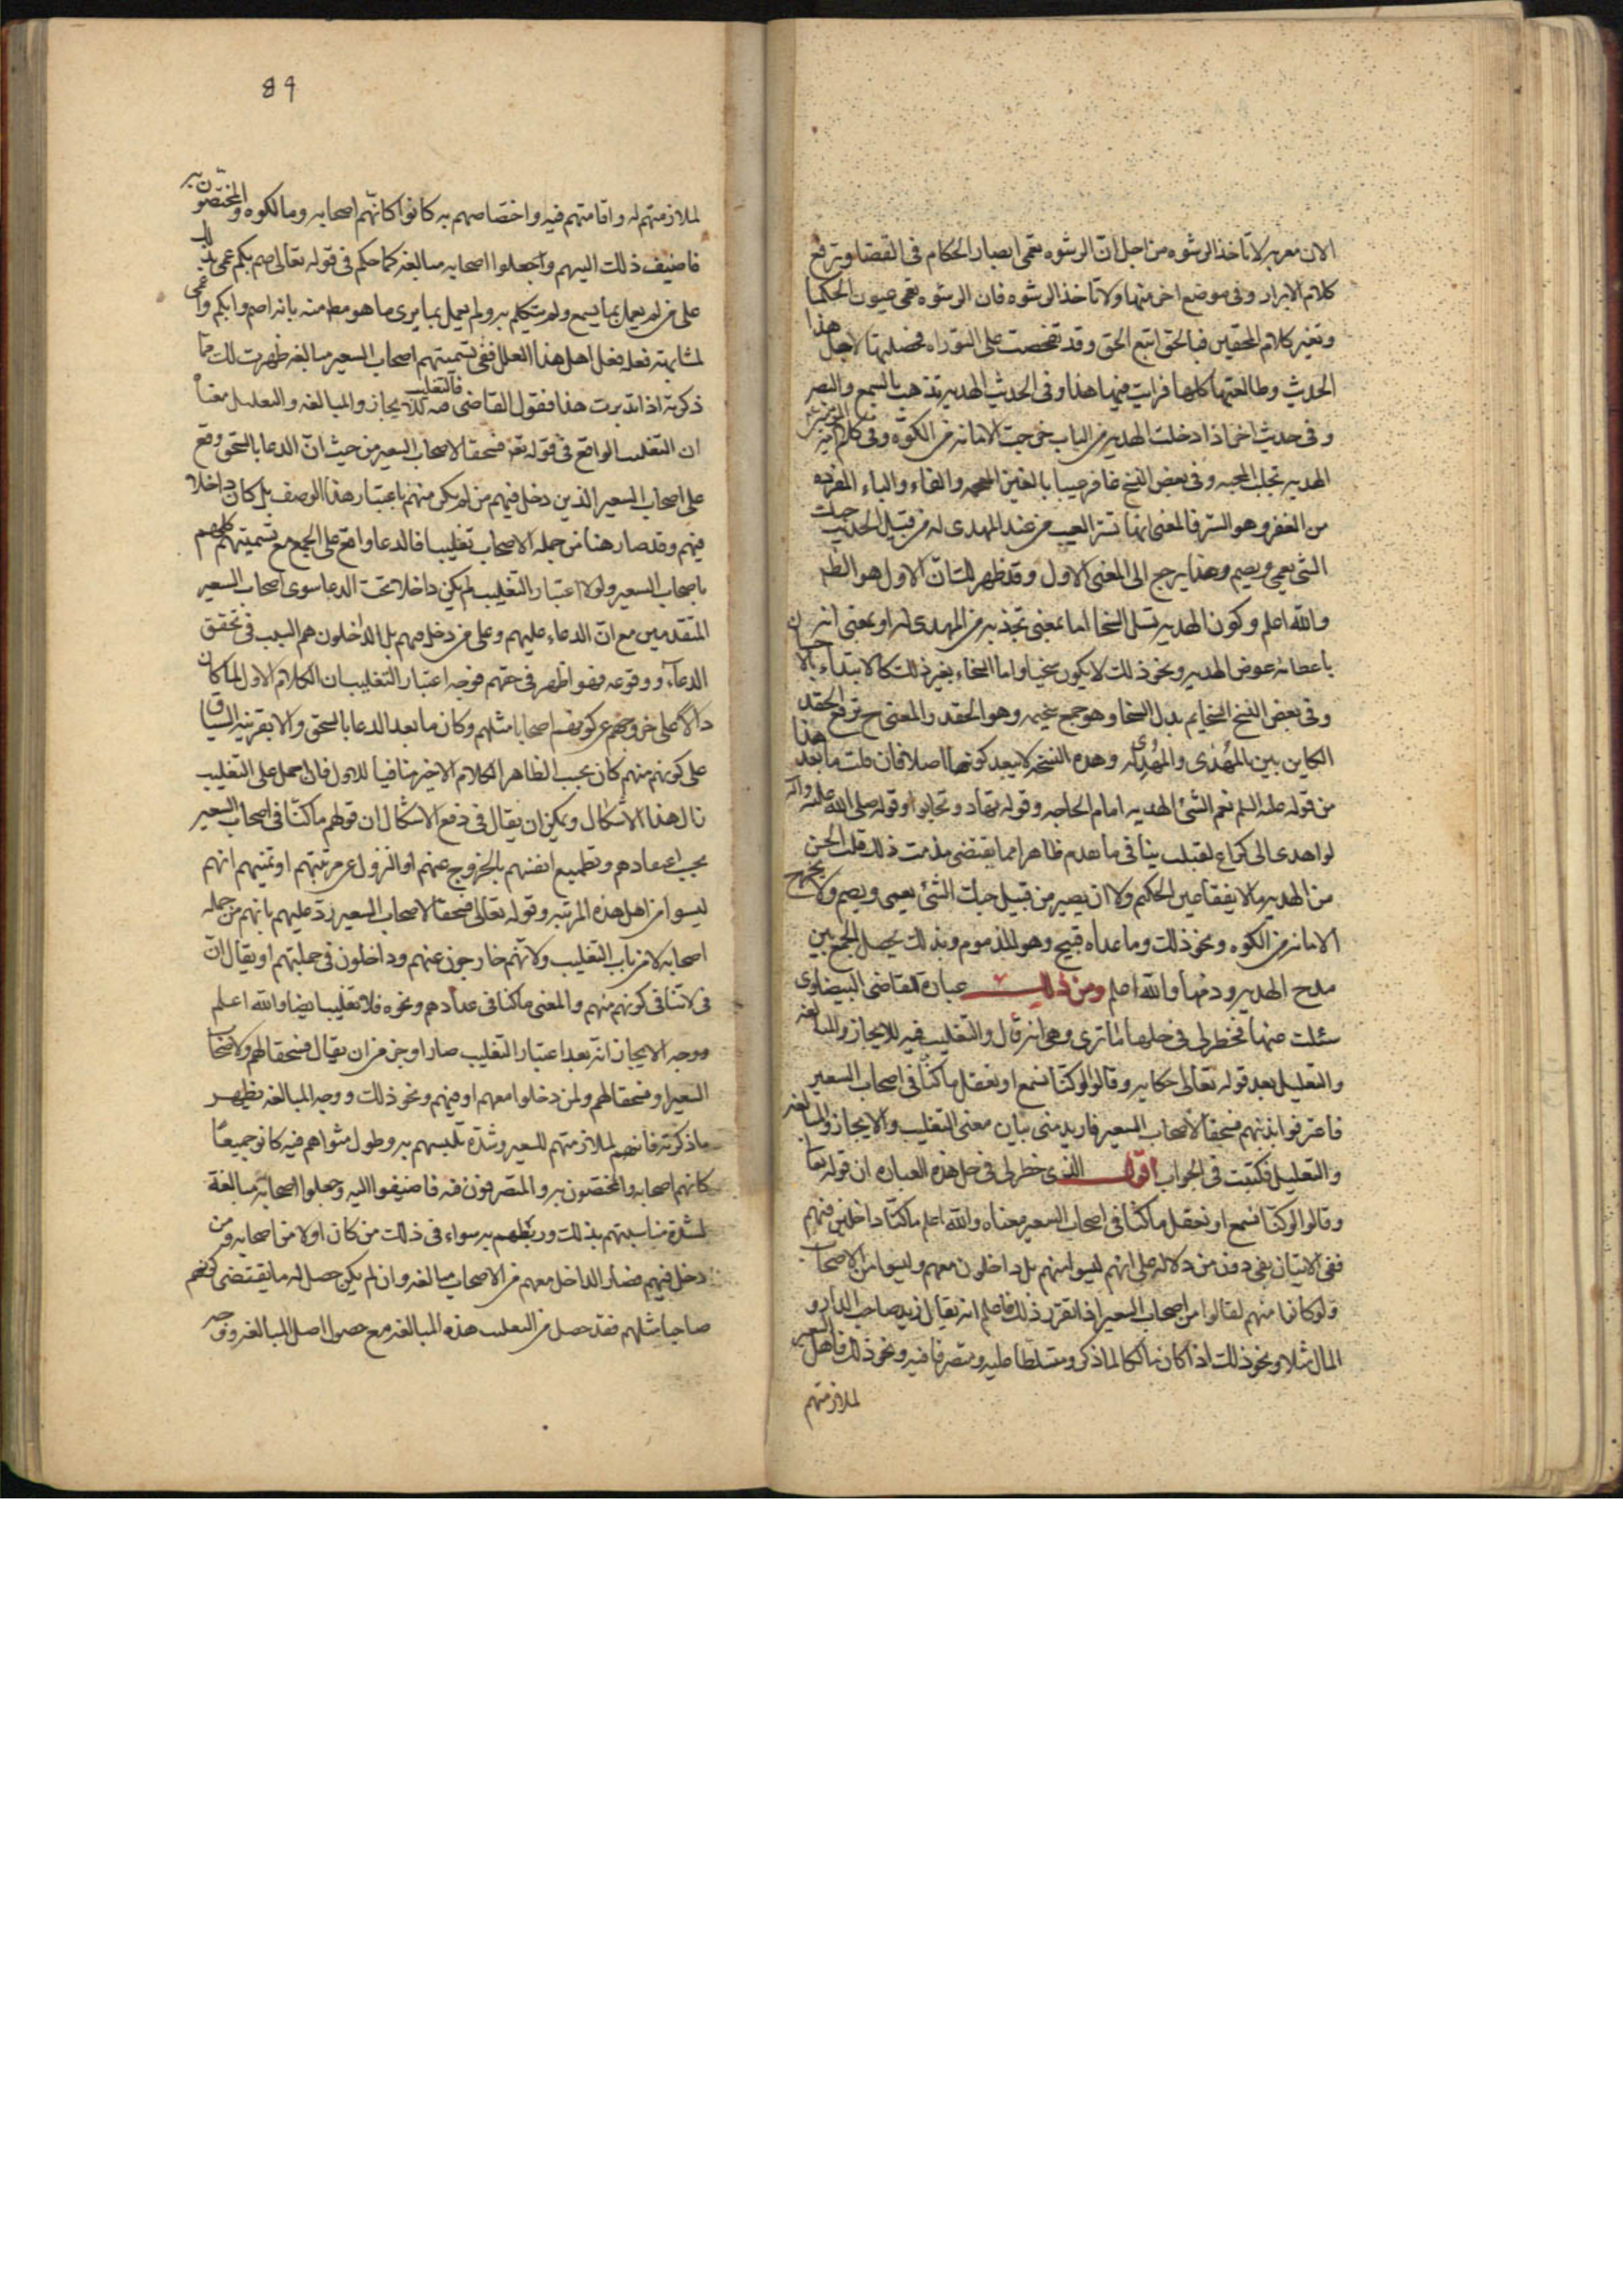 الان معربه لا تاخذ الرشوه من اجل انّ الرشوه تعمى ابصار الحكام فى القضا وترفع
كلام الابرار وفى موضع اخر منها ولا تاخذ الرشوه فان الرشوه تعمى عيون الحكما
وتغير كلام المحقين فبالحق اتبع الحق وقد تفحصت على التوراه فحصلتها لاجل هذا
الحديث وطالعتها كلها فرايت فيها هذا وفى الحديث الهديه تذهب بالسمع والبصر
وفى حديث اخر اذا دخلت الهديه من الباب خرجت الامانه من الكوّه وفى كلام
الهديه تجلب المحبه وفى بعض النسخ غافر عيبا بالغين المعجمه والفاء والياء المفرده
من الغفر وهو الستر فالمعنى انها تستر العيب من عند المهدى له من قبيل الحديث حبك
الشى يعمى ويصم وهذا يرجع الى المعنى الاول وقد ظهر لك انّ الاول هو الظ
والله اعلم وكون الهديه تسل السخا اما بمعنى تجذبه من المهدى له او بمعنى انه
باعطائه عوض الهديه ونحو ذلك لا يكون سخيا واما السخاء بغير ذلك كالابتداء بالا
وفى بعض النسخ السخايم بدل السخا وهو جمع سخيمه وهو الحقد والمعنى ح ترفع الحقد
الكاين بين المُهدى والمُهدى له وهذه النسخه لا يبعد كونها اصلا فان قلت ما بعد هذا
من قوله عليه السلم نعم الشئ الهديه امام الحاجه وقوله تهاد وتحابوا وقوله صلى الله عليه واله
لو اهدى الى كراع لقبلت ينافى ما تقدم ظاهرا مما يقتضى مذمت ذلك قلت الحسن
من الهديه ما لا يفقأ عين الحكيم ولا ان يصير من قبيل حبك الشئ يعمى ويصم ولا يخرج
الامانه من الكوه ونحو ذلك وما عداه قبيح وهو المذموم وبذلك يحصل الجمع بين
مدح الهديه وذمها والله اعلم ومن ذلك عبارة القاضى البيضاوى
سئلت عنها فخطر لى فى حلها ما ترى وهى انه قال والتغليب فيه للايجاز والمبالغه
والتعليل بعد قوله تعالى حكايه وقالوا لو كنّا نسمع او نعقل ما كنّا فى اصحاب السعير
فاعترفوا بذنبهم فسحقا لاصحاب السعير فاريد منى بيان معنى التغليب والايجاز والمبالغه
والتعليل فكتبت فى الجواب اقول الذى خطر لى فى حل هذه العباره ان قوله تعا
وقالوا لو كنّا نسمع او نعقل ما كنّا فى اصحاب السعير معناه والله اعلم ما كنّا داخلين فيهم
ففى الاتيان بفى دون من دلاله على انهم ليسوا منهم بل داخلون معهم وليسوا من الاصحاب
ولو كانوا منهم لقالوا من اصحاب السعير اذا تقرر ذلك فاعلم انه يقال زيد صاحب الدار و
المال مثلا ونحو ذلك اذا كان مالكا لما ذكر ومتسلطا عليه ومتصرفا فيه ونحو ذلك فاهل السعير
لملازمتهم
89
لملازمتهم له واقامتهم فيه واختصاصهم به كانوا كانّهم اصحابه ومالكوه والمختصّون به
فاضيف ذلك اليهم واجعلوا اصحابه مبالغه كما حكم فى قوله تعالى صم بكم عمى
على من لم يعمل بما يسمع ولم يتكلم به ولم يعمل بما يرى ما هو مط منه بانه اصم وابكم واعمى
لمشابهته فعله فعل اهل هذا العلل ففى تسميتهم اصحاب السعير مبالغه ظهرت لك ممّا
ذكرته اذا تدبرت هذا فقول القاضى فالتغليب فيه للايجاز والمبالغه والتعليل معناه
ان التغليب الواقع فى قوله تع فسحقا لاصحاب السعير من حيث انّ الدعا بالسحق وقع
على اصحاب السعير الذين دخل فيهم من لم يكن منهم باعتبار هذا الوصف بل كان داخلا
فيهم وقد صار هنا من جمله الاصحاب تغليبا فالدعا واقع على الجميع مع تسميتهم كلهم
باصحاب السعير ولولا اعتبار التغليب لم يكن داخلا تحت الدعا سوى اصحاب السعير
المتقدمين مع انّ الدعاء عليهم وعلى من دخل فيهم بل الداخلون هم السبب فى تحقق
الدعاء ووقوعه فهو اظهر فى حقهم فوجه اعتبار التغليب ان الكلام الاول لما كان
دالا على خروجهم عن كونهم اصحابا مثلهم وكان ما بعد الدعا بالسحق والا بقرينه السياق
على كونهم منهم كان بحسب الظاهر الكلام الاخير منافيا للاول فان حمل على التغليب
زال هذا الاشكال ويمكن ان يقال فى دفع الاشكال ان قولهم ما كنّا فى اصحاب السعير
بحسب اعتقادهم وتطميع انفسهم بالخروج عنهم او النزول عن مرتبتهم او تمنيهم انهم
ليسوا من اهل هذه المرتبه وقوله تعالى فسحقا لاصحاب السعير ردّ عليهم بانهم من جمله
اصحابه لا من باب التغليب ولا انّهم خارجون عنهم وداخلون فى جملتهم او يقال انّ
فى لا تنافى كونهم منهم والمعنى ما كنا فى عدادهم ونحوه فلا تغليب ايضا والله اعلم
ووجه الايجاز انّه بعد اعتبار التغليب صار اوجز من ان يقال فسحقا لهم ولاصحاب
السعير او فسحقا لهم ولمن دخلوا معهم او فيهم ونحو ذلك ووجه المبالغه يظهر
ماذكرته فانهم لملازمتهم للسعير وشدّة تلبسهم به وطول مثواهم فيه كانو جميعًا
كانهم اصحابه والمختصّون به والمتصرفون فيه فاضيفوا اليه وجعلوا اصحابه مبالغة
لشدّة مناسبتهم بذلك وربطهم به سواء فى ذلك من كان اولا من اصحابه ومن
دخل فيهم فصار الداخل معهم من الاصحاب مبالغه وان لم يكن حصل له ما يقتضى كونهم
صاحبا مثلهم فقد حصل من التغليب هذه المبالغه مع حصول اصل المبالغه ووجه